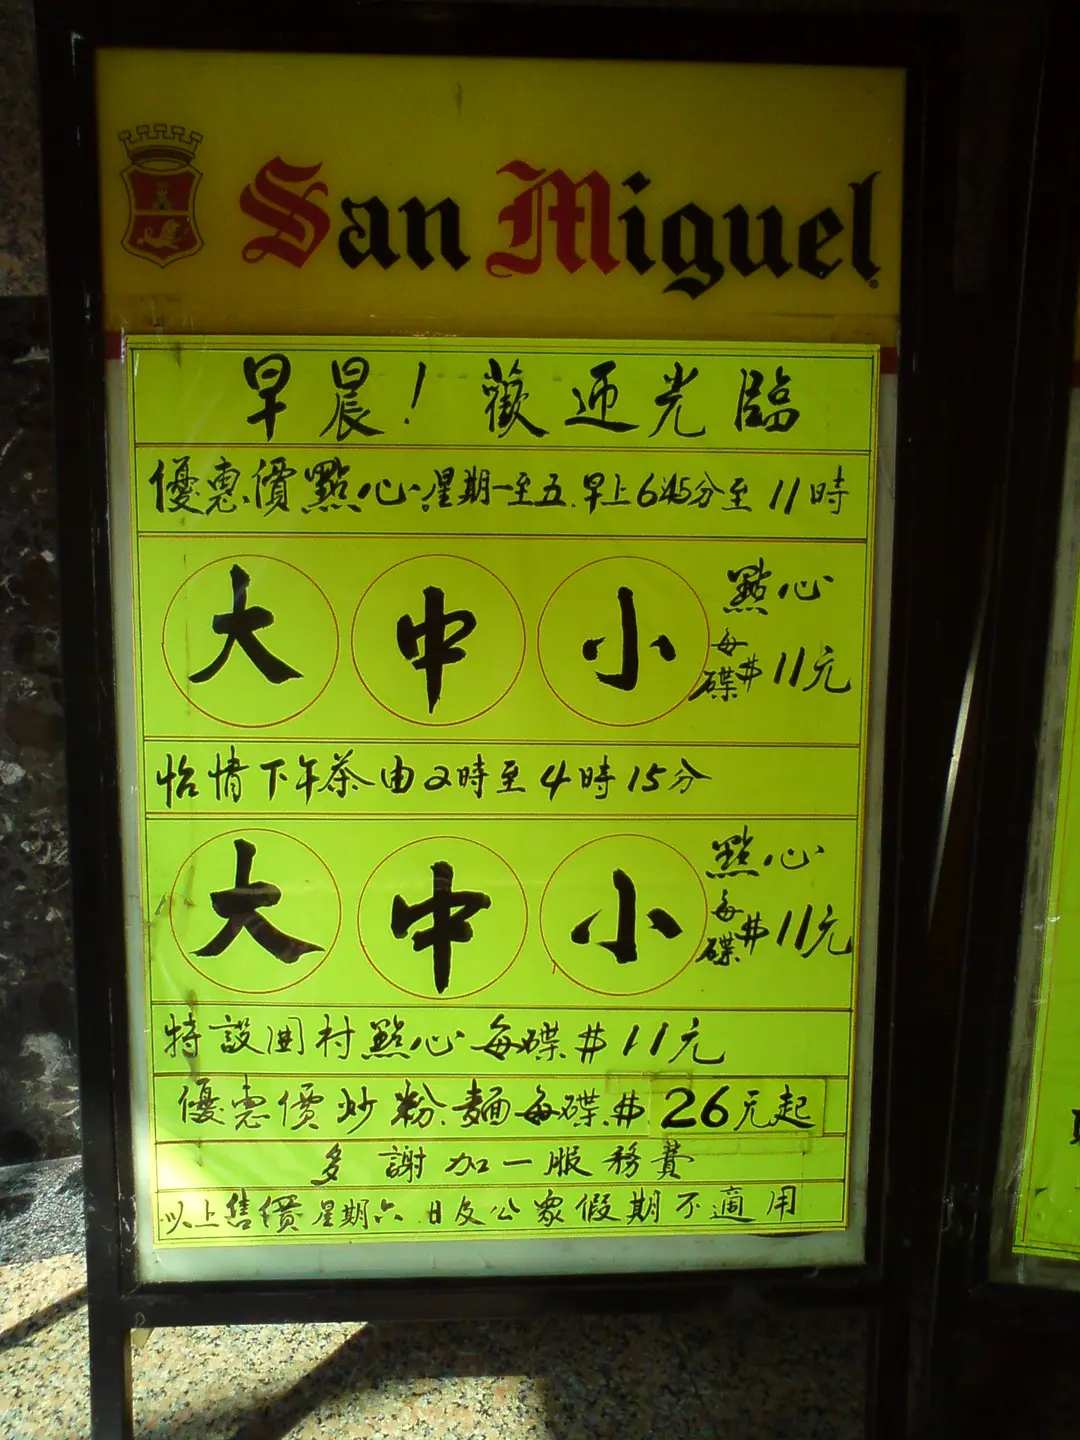 San Miguel
早晨！歡迎光臨
優惠價點心 星期一至五 早上6時45分至11時
大 中 小 點心每碟#11元
怡情下午茶由2時至4時15分
大 中 小 點心每碟#11元
特設圍村點心每碟#11元
優惠價炒粉.麵每碟#26元起
多謝加一服務費
以上售價星期六.日及公眾假期不適用